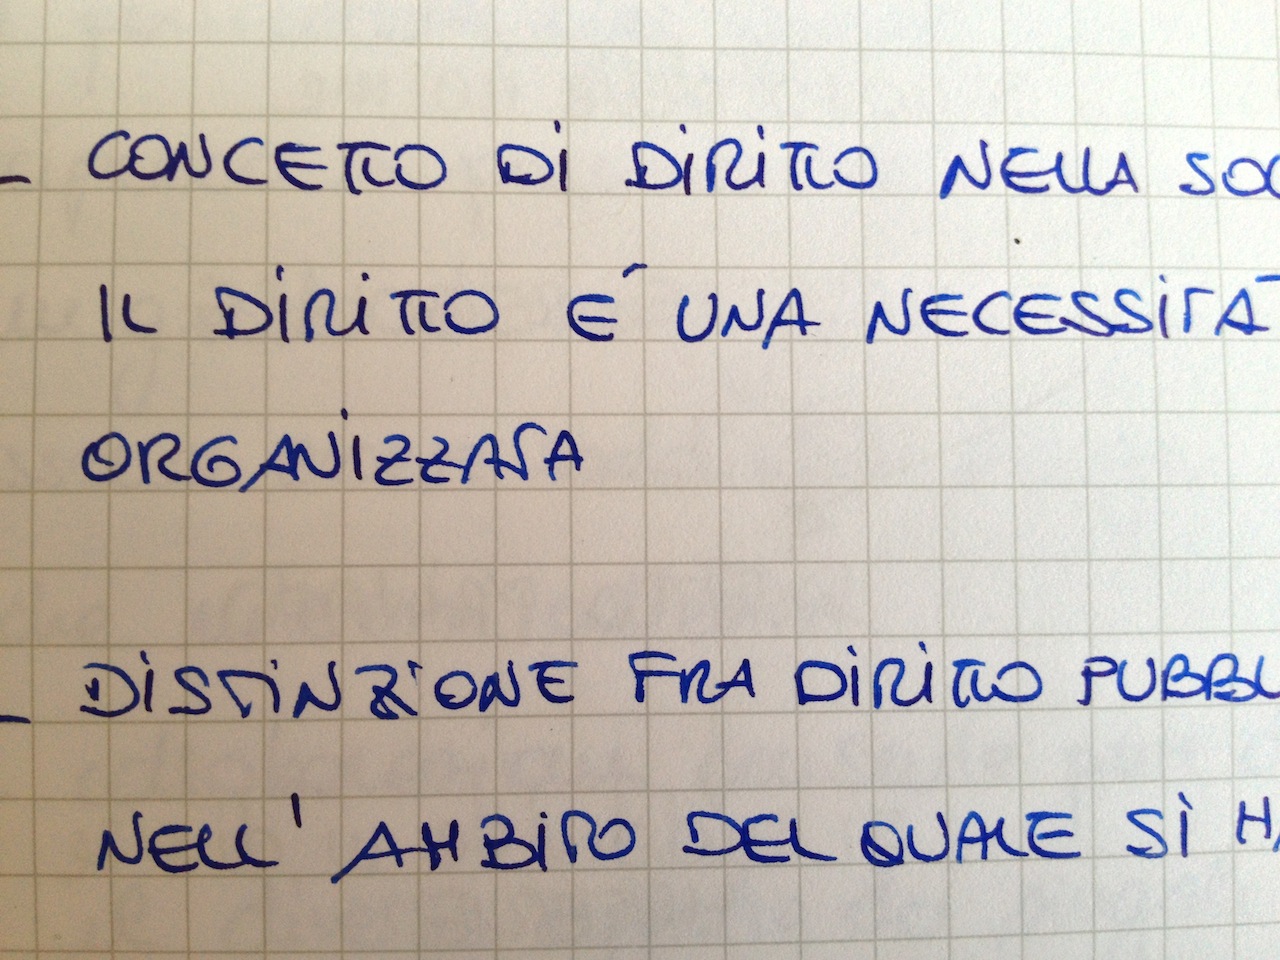 - CONCETTO DI DIRITTO NELLA SOC
IL DIRITTO É UNA NECESSITÀ
ORGANIZZATA
- DISTINZIONE FRA DIRITTO PUBBL
NELL' AMBITO DEL QUALE SI